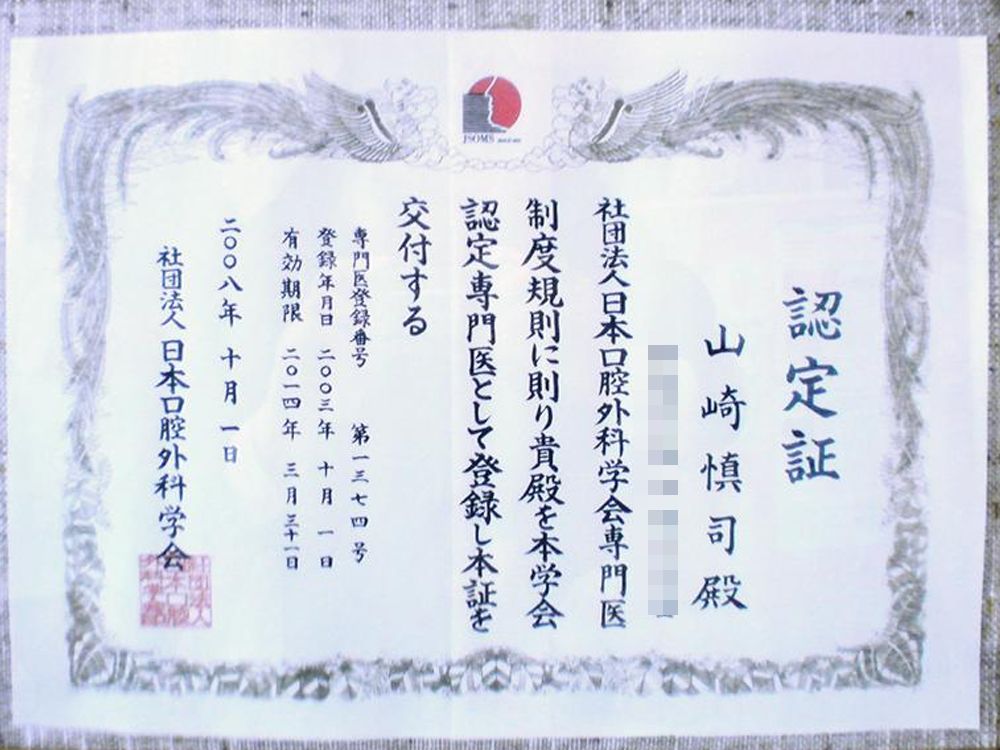 JSOMS
認定証
山崎慎司殿
社団法人日本口腔外科学会専門医
制度規則に則り貴殿を本学会
認定専門医として登録し本証を
交付する
専門医登録番号 第一三七四号
登録年月日 二〇〇三年 十月 一日
有効期限 二〇一四年 三月三十一日
二〇〇八年 十月一日
社団法人 日本口腔外科学会